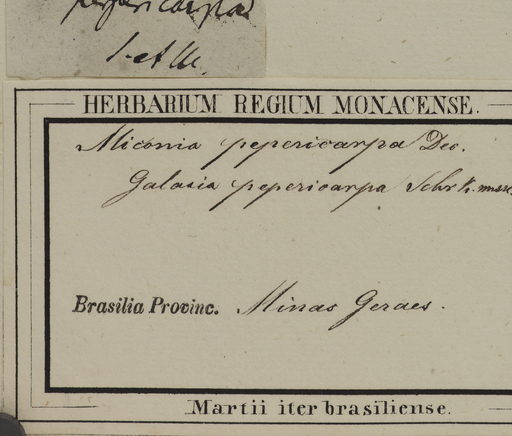 pepericarpa
HERBARIUM REGIUM MONACENSE.
Miconia pepericarpa Dec.
Galasia pepericarpa Schrk. mss.
Brasilia Provinc. Minas Geraes.
Martii iter brasiliense.